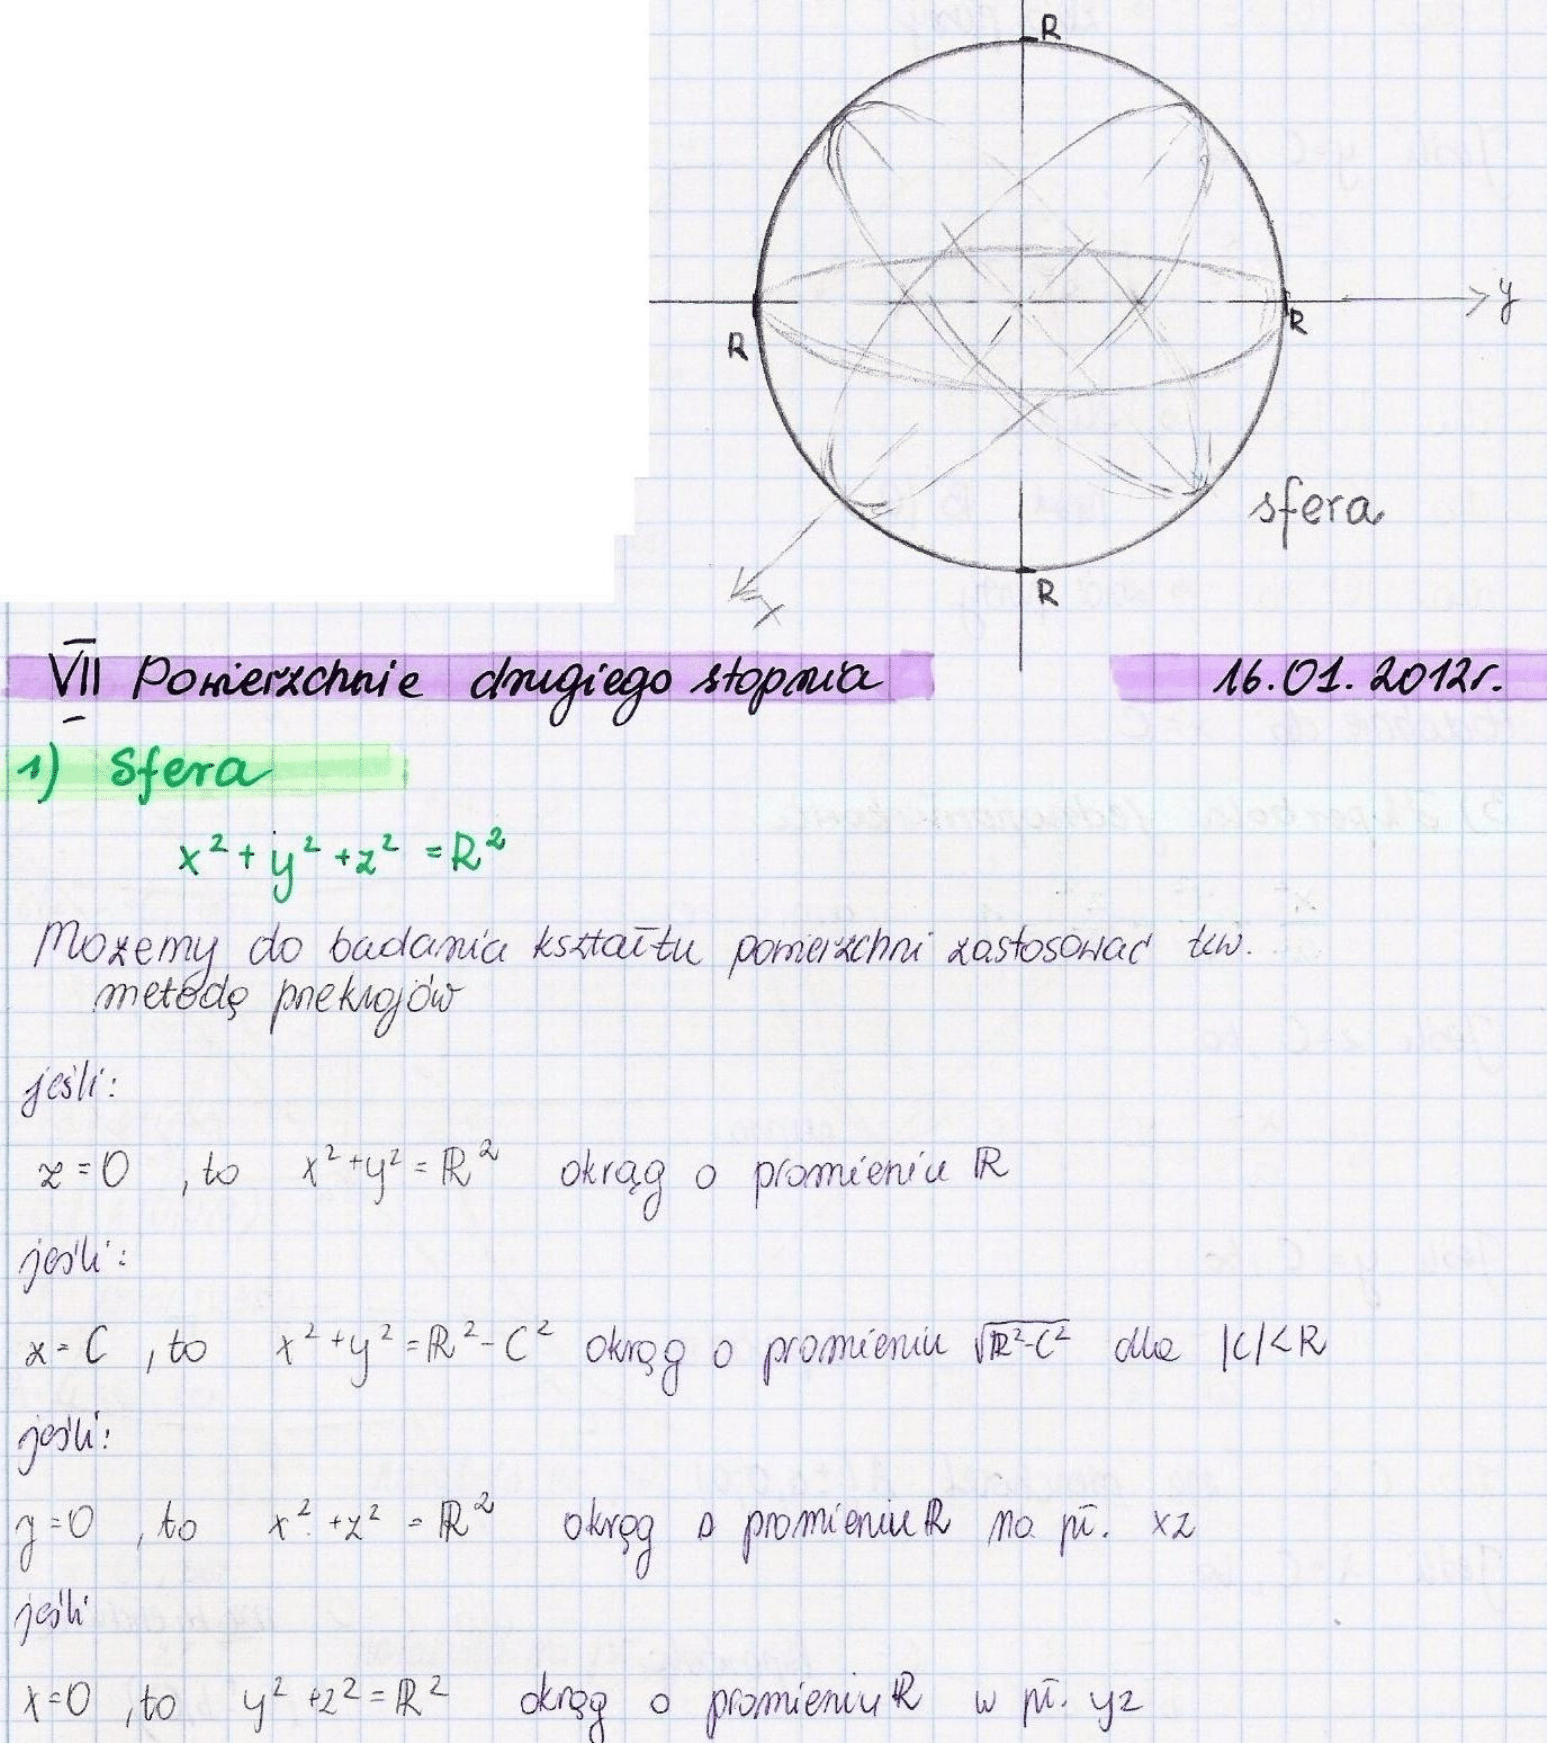 R
y
R
R
sfera
R
x
VII Powierzchnie drugiego stopnia 16.01.2012r.
1) Sfera
x² + y² + z² = R²
Możemy do badania kształtu powierzchni zastosować tzw.
metodę przekrojów
jeśli:
z = 0 , to x² + y² = R² okrąg o promieniu R
jeśli:
z = C , to x² + y² = R² - C² okrąg o promieniu √R²-C² dla |C| < R
jeśli:
y = 0 , to x² + z² = R² okrąg o promieniu R na pł. xz
jeśli
x = 0 , to y² + z² = R² okrąg o promieniu R w pł. yz